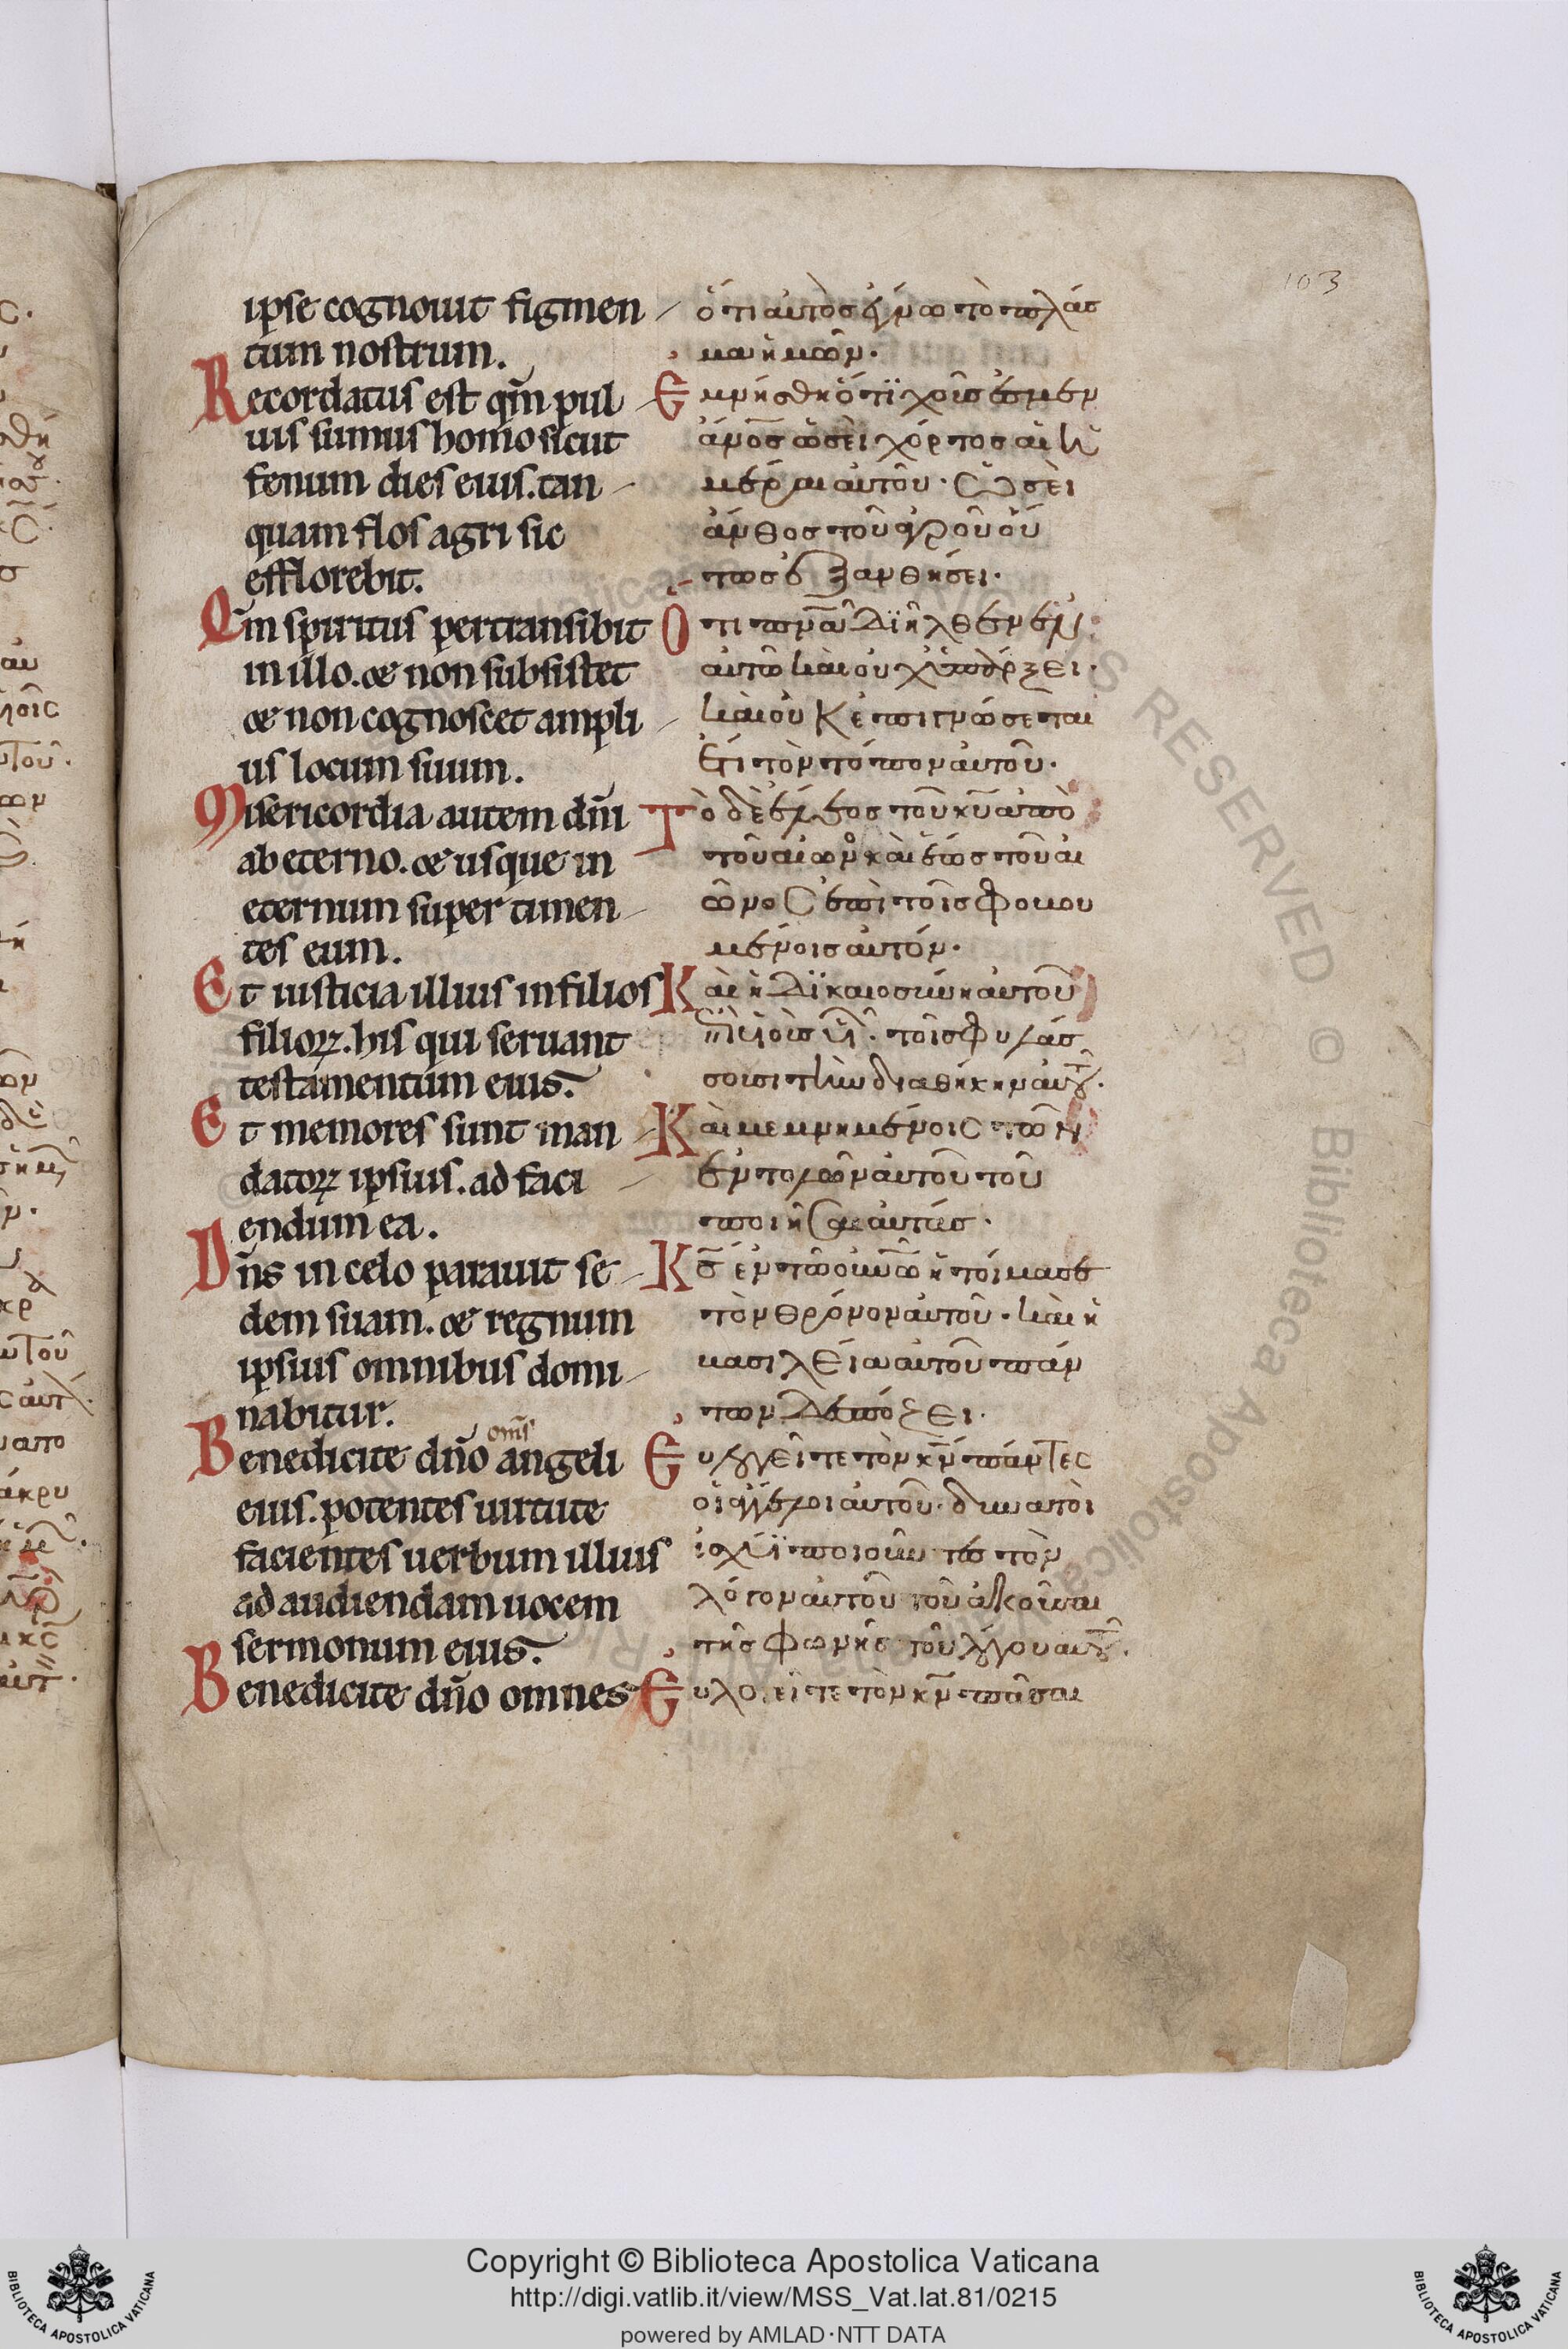 103
ipse cognouit figmen
tum nostrum.
Recordatus est qm̄ pul
uis sumus homo sicut
fenum dies eius. tan
quam flos agri sic
efflorebit.
Qm̄ spiritus pertransibit
in illo. & non subsistet
& non cognoscet ampli
us locum suum.
Misericordia autem dn̄i
ab eterno. & usque in
eternum super timen
tes eum.
Et iusticia illius in filios
filioꝝ. his qui seruant
testamentum eius.
Et memores sunt man
datoꝝ ipsius. ad faci
endum ea.
Dn̄s in celo parauit se
dem suam. & regnum
ipsius omnibus domi
nabitur.
Benedicite dn̄o om̄s angeli
eius. potentes uirtute
facientes uerbum illius
ad audiendam uocem
sermonum eius.
Benedicite dn̄o omnes
ὅτι αὐτὸσ ἔγνω τὸ πλάσ
μα ἡμῶν.
Ἐμνήσθη ὅτι χοῦσ ἐσμεν
ἄν̅οσ ὡσεὶ χόρτοσ αἱ ἡ
μέραι αὐτοῦ. Ὡσεὶ
ἄνθοσ τοῦ ἀγροῦ οὕ
τωσ ἐξανθήσει.
Ὅτι πν̅α διῆλθεν ἐν
αὐτῶ καὶ οὐχ ὑπάρξει.
καὶ οὐκ ἐπιγνώσεται
ἔτι τὸν τόπον αὐτοῦ.
Τὸ δὲ ἔλεος τοῦ κ̅υ ἀπὸ
τοῦ αἰῶνο καὶ ἕωσ τοῦ αἰ
ῶνοσ ἐπὶ τοῖσ φοβου
μένοισ αὐτόν.
Καὶ ἡ δικαιοσύνη αὐτοῦ
ἐπὶ υἱοῖσ υἱ. τοῖσ φυλάσ
σουσι τὴν διαθήκην αὐτοῦ.
Καὶ μεμνημένοισ τῶν
ἐντολῶν αὐτοῦ τοῦ
ποιῆσαι αὐτάσ.
Κ̅σ ἐν τῶ οὐν̅ῶ ἡτοίμασε
τὸν θρόνον αὐτοῦ. καὶ ἡ
βασιλεία αὐτοῦ πάν
των δεσπόζει.
Εὐλογεῖτε τὸν κ̅ν πάντεσ
οἱ ἄγγελοι αὐτοῦ. δυνατοὶ
ἰσχύϊ ποιοῦντεσ τὸν
λόγον αὐτοῦ τοῦ ἀκοῦσαι
τῆσ φωνῆσ τοῦ λόγου αὐτοῦ.
Εὐλογεῖτε τὸν κ̅ν πᾶσαι
Copyright © Biblioteca Apostolica Vaticana
http://digi.vatlib.it/view/MSS_Vat.lat.81/0215
powered by AMLAD·NTT DATA